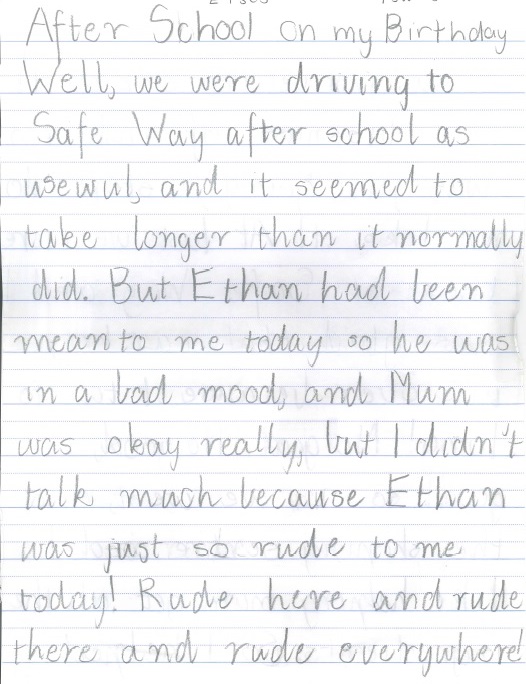 After School on my Birthday
Well, we were driving to
Safe Way after school as
usewul, and it seemed to
take longer than it normally
did. But Ethan had been
mean to me today so he was
in a bad mood, and Mum
was okay really, but I didn't
talk much because Ethan
was just so rude to me
today! Rude here and rude
there and rude everywhere!